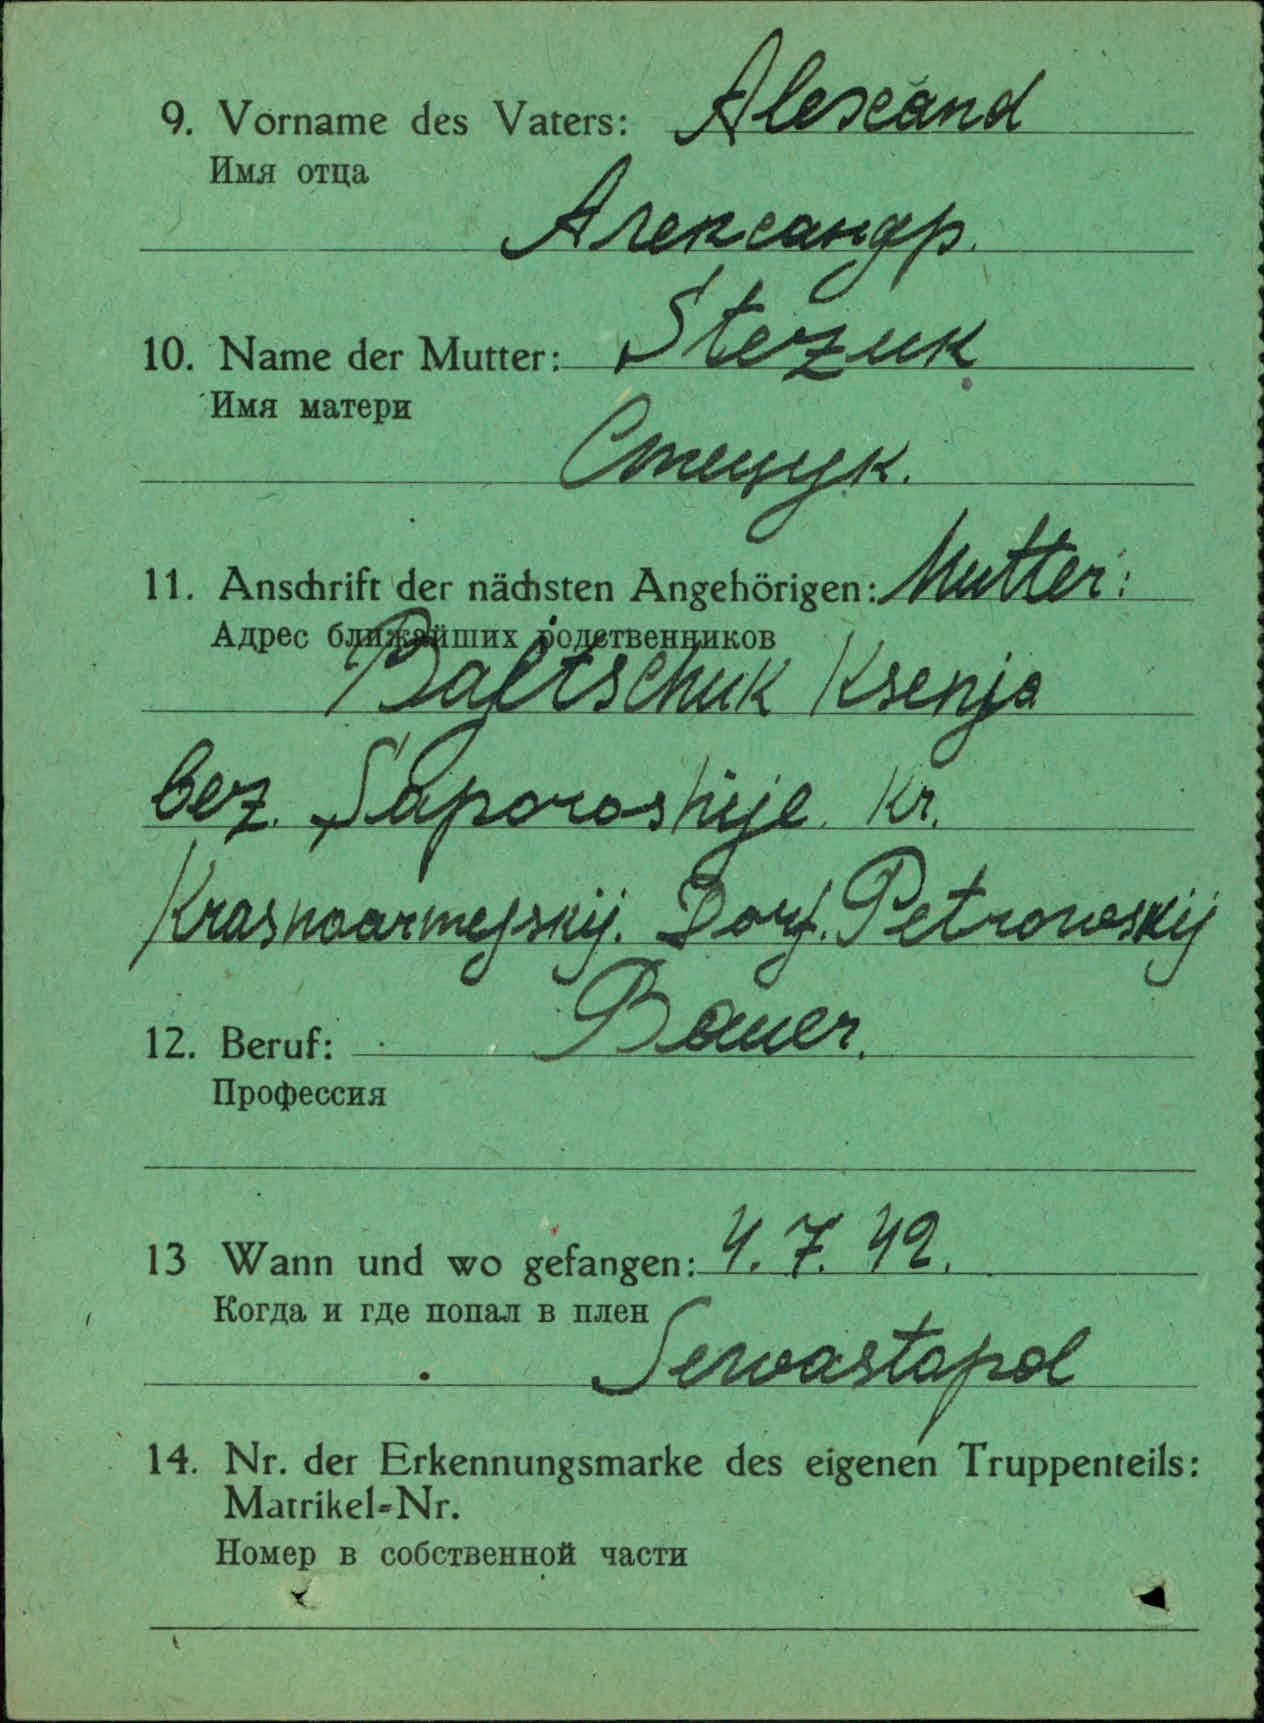 9. Vorname des Vaters: Alexand
Имя отца
Александр.
10. Name der Mutter: Stezuk
Имя матери
Стецук.
11. Anschrift der nächsten Angehörigen: Mutter:
Адрес ближайших родственников
Bajtschuk Ksenja
bez. Saporoshije. Kr.
Krasnoarmejskij. Dorf. Petrowoskij
12. Beruf: Bauer.
Профессия
13 Wann und wo gefangen: 4. 7. 42.
Когда и где попал в плен
Sewastapol
14. Nr. der Erkennungsmarke des eigenen Truppenteils:
Matrikel-Nr.
Номер в собственной части